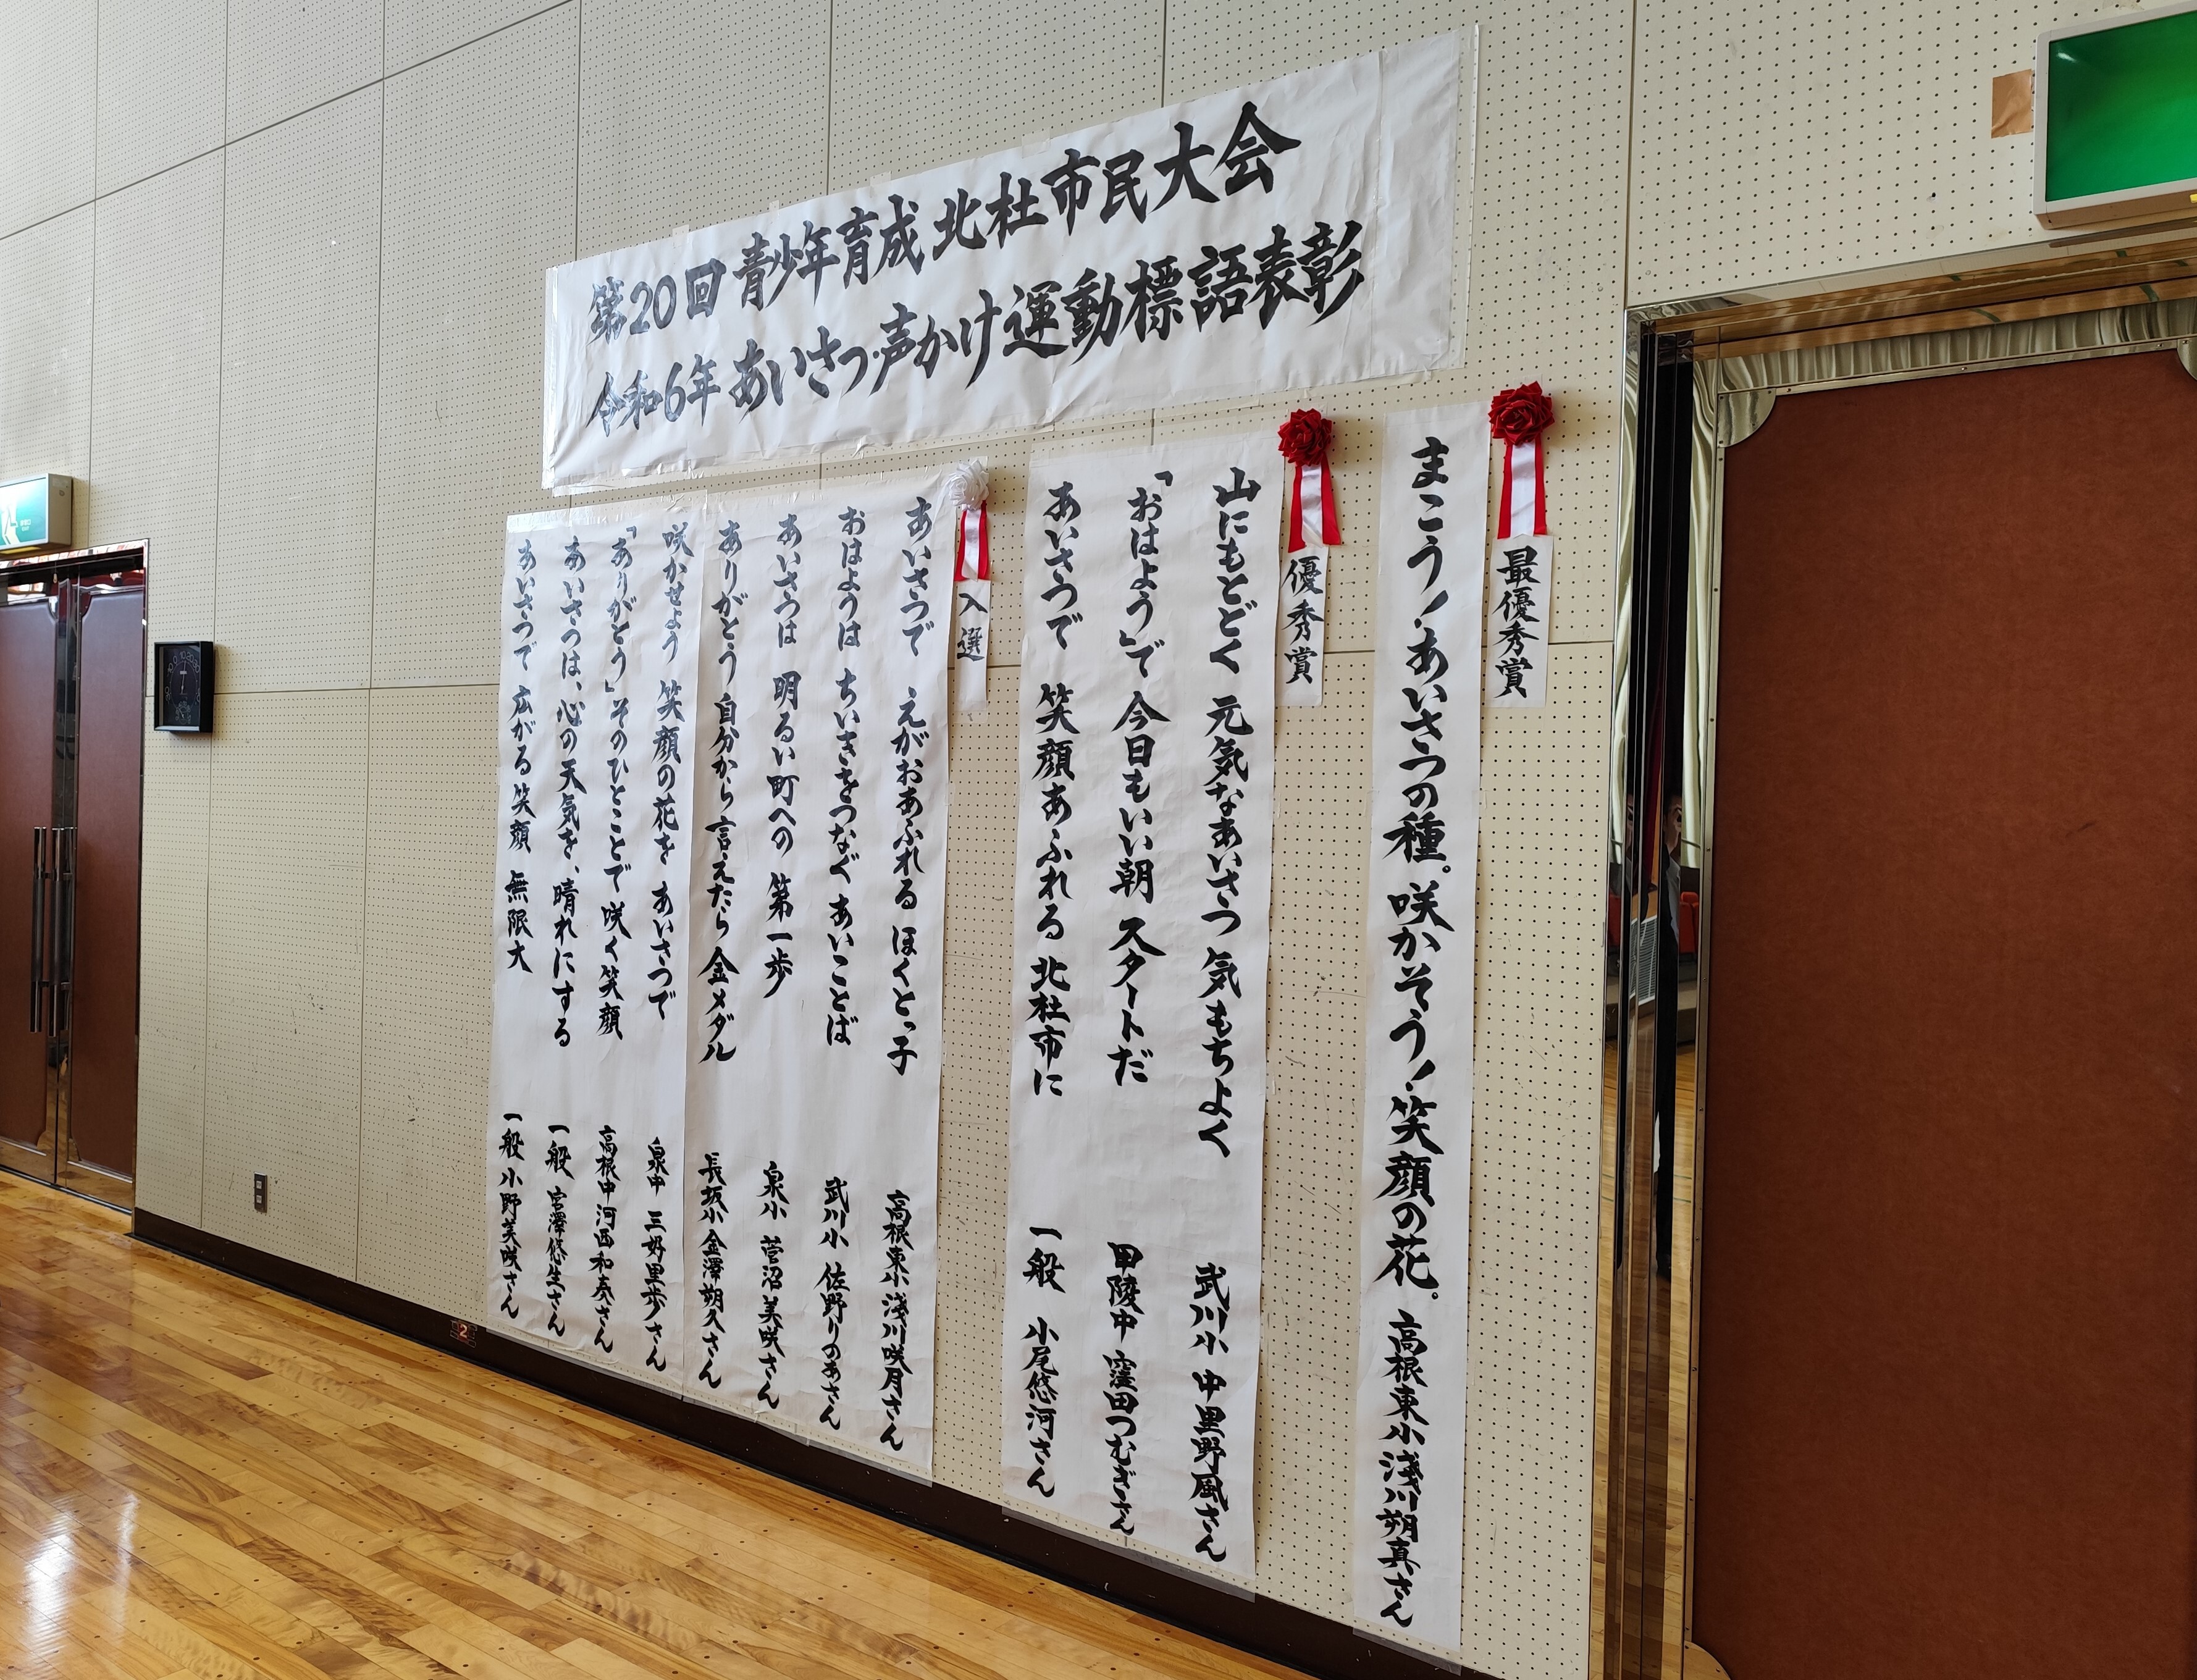 第20回 青少年育成 北杜市民大会
令和6年 あいさつ・声かけ運動標語表彰
最優秀賞
まこう！あいさつの種。咲かそう！笑顔の花。 高根東小 淺川朔真さん
優秀賞
山にもとどく 元気なあいさつ 気もちよく 武川小 中里野風さん
「おはよう」で 今日もいい朝 スタートだ 甲陵中 窪田つむぎさん
あいさつで 笑顔あふれる 北杜市に 一般 小尾悠河さん
入選
あいさつで えがおあふれる ほくとっ子 高根東小 淺川咲月さん
おはようは ちいきをつなぐ あいことば 武川小 佐野りのあさん
あいさつは 明るい町への 第一歩 泉小 菅沼美咲さん
ありがとう 自分から言えたら 金メダル 長坂小 金澤朔久さん
咲かせよう 笑顔の花を あいさつで 泉中 三好里歩さん
「ありがとう」そのひとことで 咲く笑顔 高根中 河西和奏さん
あいさつは、心の天気を、晴れにする 一般 宮澤悠生さん
あいさつで 広がる笑顔 無限大 一般 小野美咲さん
2